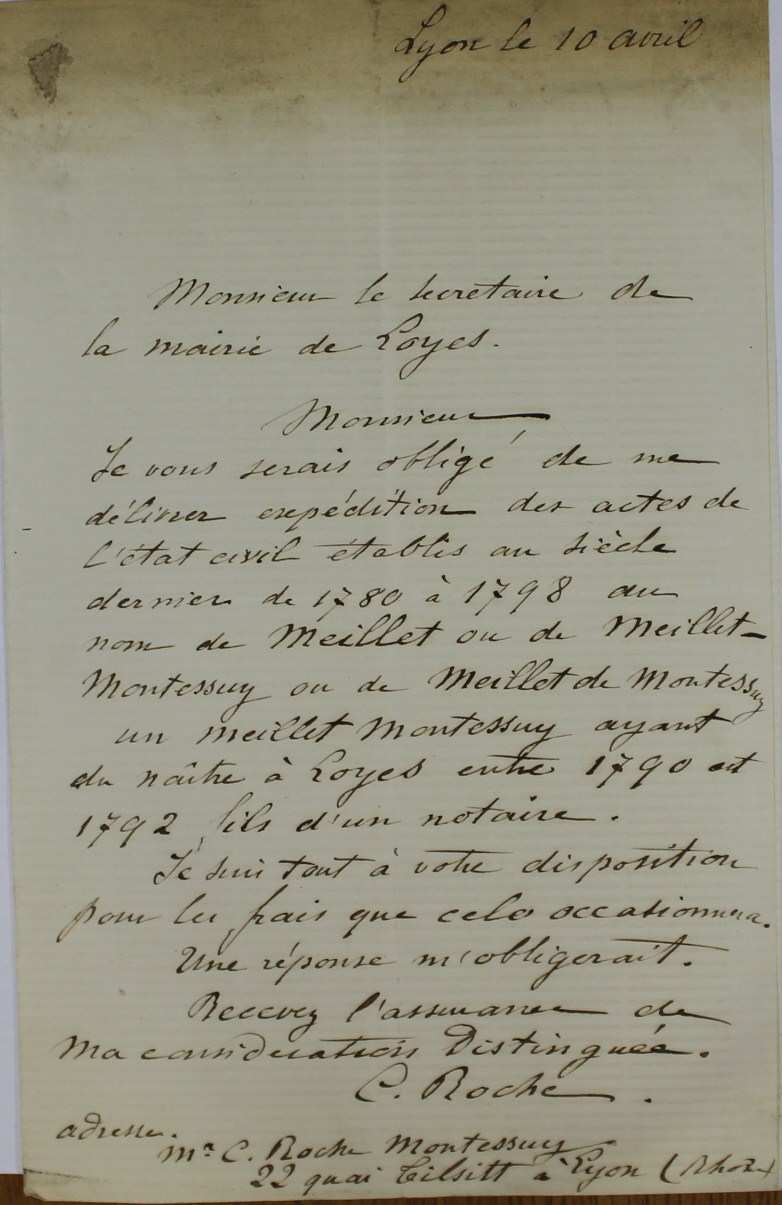 Lyon le 10 avril
Monsieur le secretaire de
la mairie de Loyes.
Monsieur
Je vous serais obligé de me
délivrer expédition des actes de
l'état civil établis au siècle
dernier de 1780 à 1798 au
nom de Meillet ou de Meillet-
Montessuy ou de Meillet de Montessuy
un Meillet Montessuy ayant
du naître à Loyes entre 1790 et
1792 fils d'un notaire.
Je suis tout à votre disposition
pour les frais que cela occasionnera.
Une réponse m'obligerait.
Recevez l'assurance de
Ma considération Distinguée.
C. Roche.
adresse.
Mr C. Roche Montessuy
22 quai Tilsitt à Lyon (Rhône)